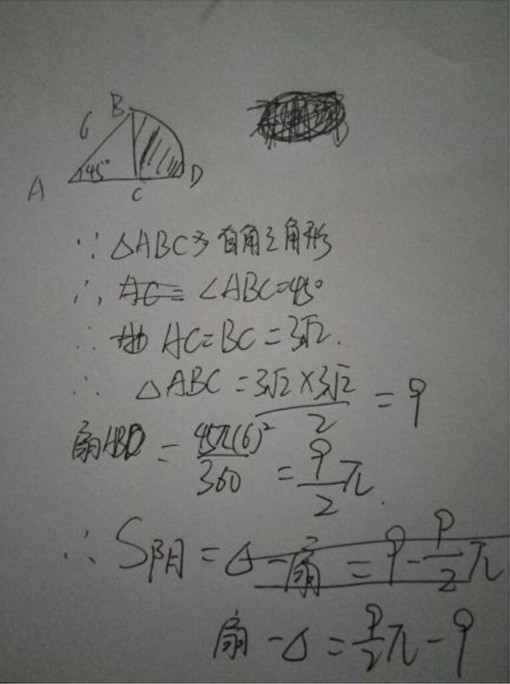 6 B
A 45° C D
∵ △ABC为直角三角形
∴ AC= ∠ABC=45°
∴ 由 AC=BC=3√2.
∴ △ABC = 3√2×3√2/2 = 9
扇ABD = 45π(6)²/360 = 9/2 π.
∴ S阴 = △-扇 = 9-9/2 π
扇-△ = 9/2 π-9